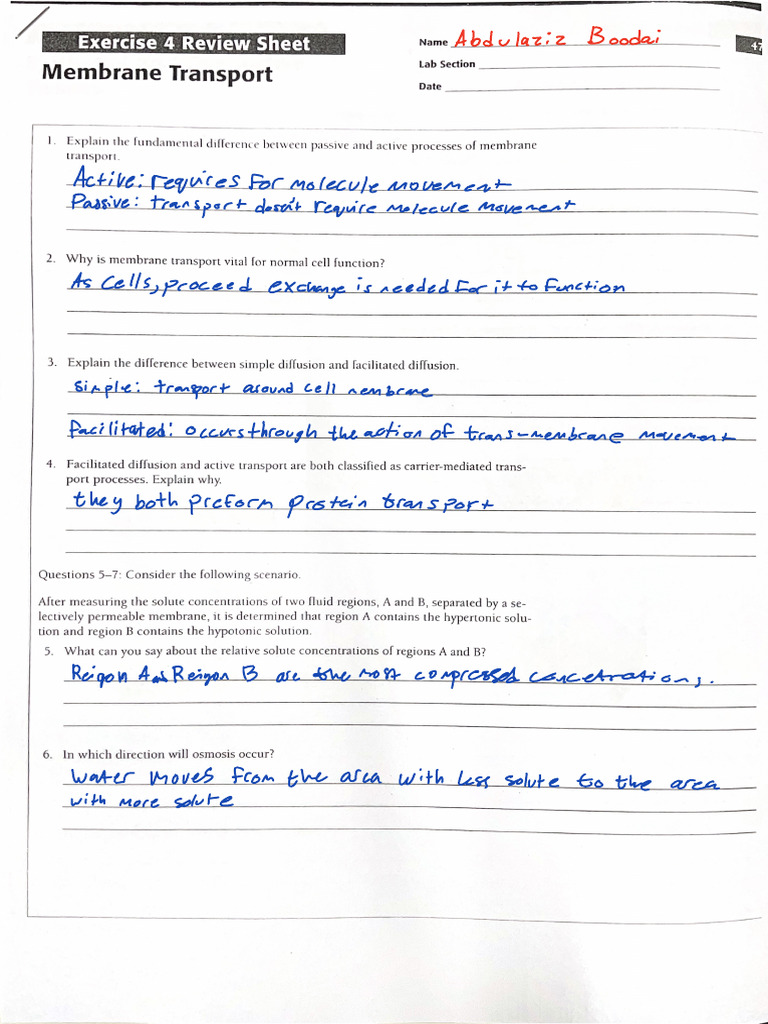 Exercise 4 Review Sheet
Membrane Transport
Name Abdulaziz Boodai
Lab Section
Date
47
1. Explain the fundamental difference between passive and active processes of membrane
transport.
Active: requires for molecule movement
Passive: transport doesn't require molecule movement
2. Why is membrane transport vital for normal cell function?
As cells, proceed exchange is needed for it to function
3. Explain the difference between simple diffusion and facilitated diffusion.
Simple: transport around cell membrane
facilitated: occurs through the action of trans-membrane movement
4. Facilitated diffusion and active transport are both classified as carrier-mediated trans-
port processes. Explain why.
they both preform protein transport
Questions 5–7: Consider the following scenario.
After measuring the solute concentrations of two fluid regions, A and B, separated by a se-
lectively permeable membrane, it is determined that region A contains the hypertonic solu-
tion and region B contains the hypotonic solution.
5. What can you say about the relative solute concentrations of regions A and B?
Reigon A and Reigon B are the most compressed concetrations.
6. In which direction will osmosis occur?
Water moves from the area with less solute to the area
with more solute